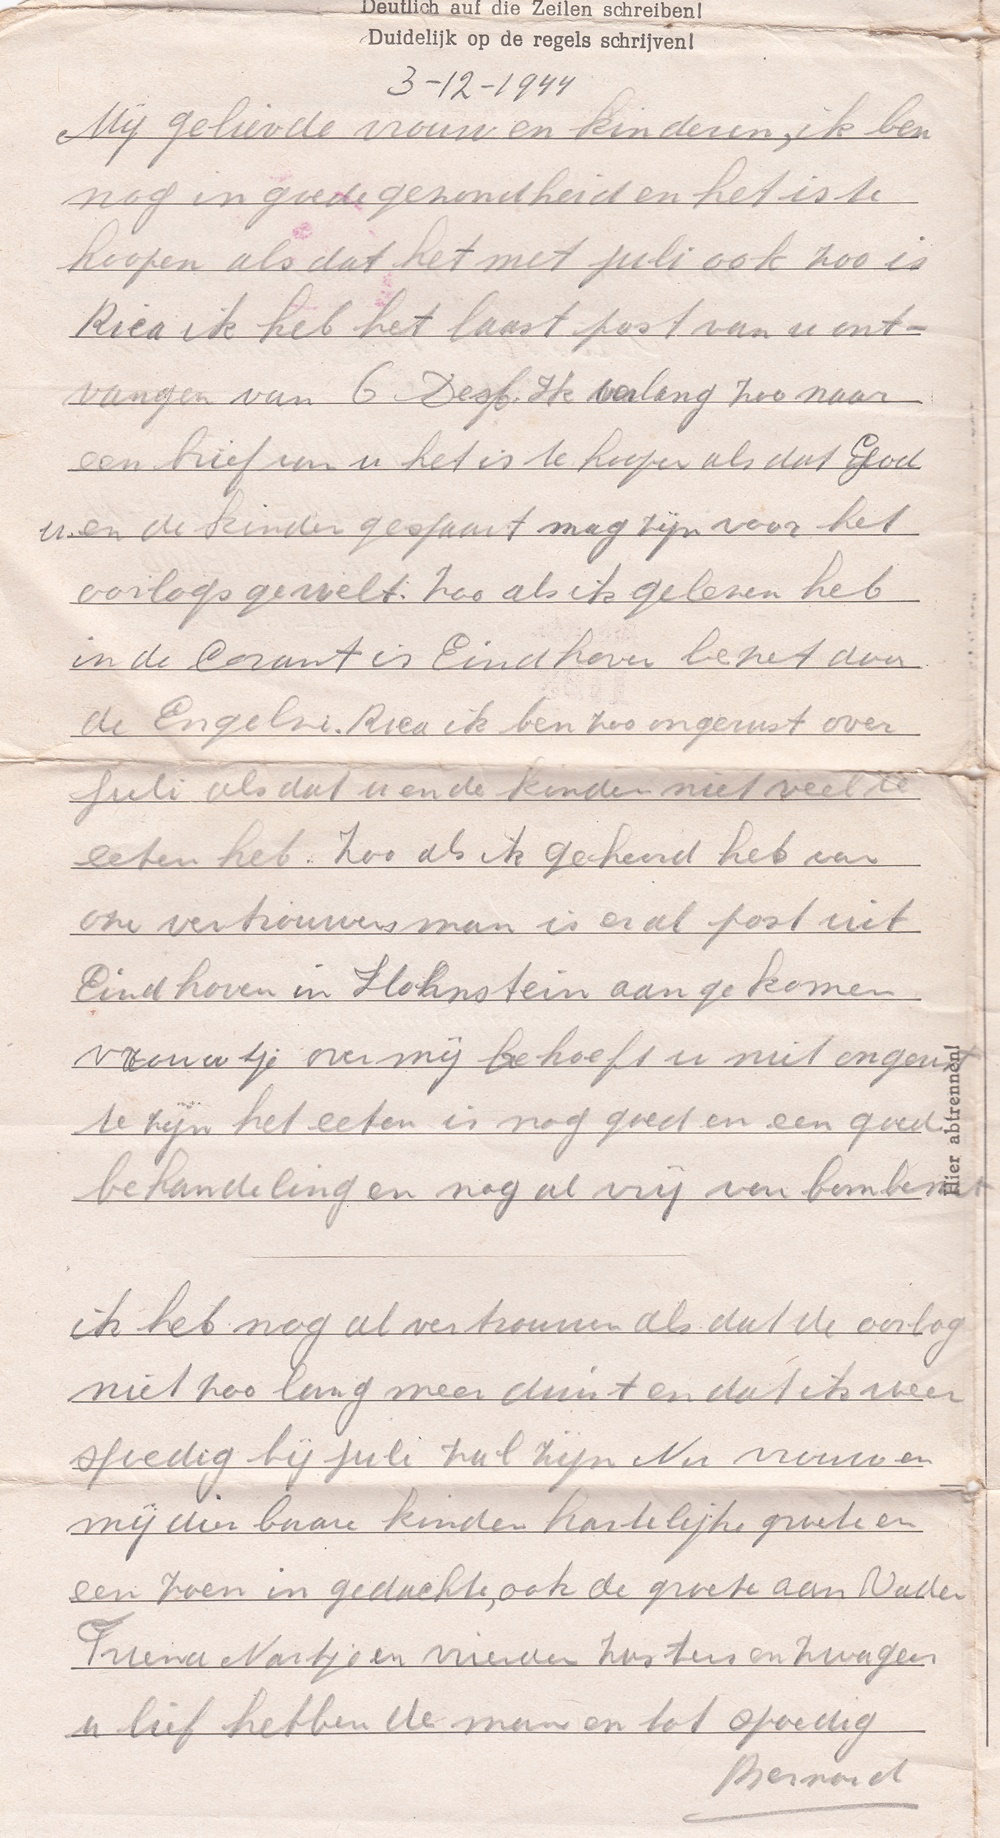 Deutlich auf die Zeilen schreiben!
Duidelijk op de regels schrijven!
3-12-1944
Mij gelievde vrouw en kinderen, ik ben
nog in goede gezondheid en het is te
hoopen als dat het met juli ook zoo is
Rica ik heb het laast post van u ont-
vangen van 6 Ik verlang zoo naar
een brief van u het is te hoopen als dat God
u. en de kinder gespaart mag zijn voor het
oorlogs gewelt. Zoo als ik gelesen heb
in de Corant is Eindhoven bezet door
de Engelse. Rica ik ben zoo ongerust over
juli als dat u en de kinder niet veel te
eeten heb. Zoo als ik gehoord heb van
onse vertrouwensman is er al post uit
Eindhoven in Hohnstein aan gekomen
vrouwtje over mij behoeft u niet ongerust
te zijn het eeten is nog goed en een goed
behandeling en nog al vrij van bommen
Hier abtrennen!
ik heb nog al vertrouwen als dat de oorlog
niet zoo lang meer duurt en dat ik weer
spoedig bij juli zal zijn Nu vrouw en
mij dier baare kinder hartelijke groete en
een zoen in gedachte, ook de groete aan Vader
en vrienden zusters en zwagers
u lief hebben de man en tot spoedig
Bernard